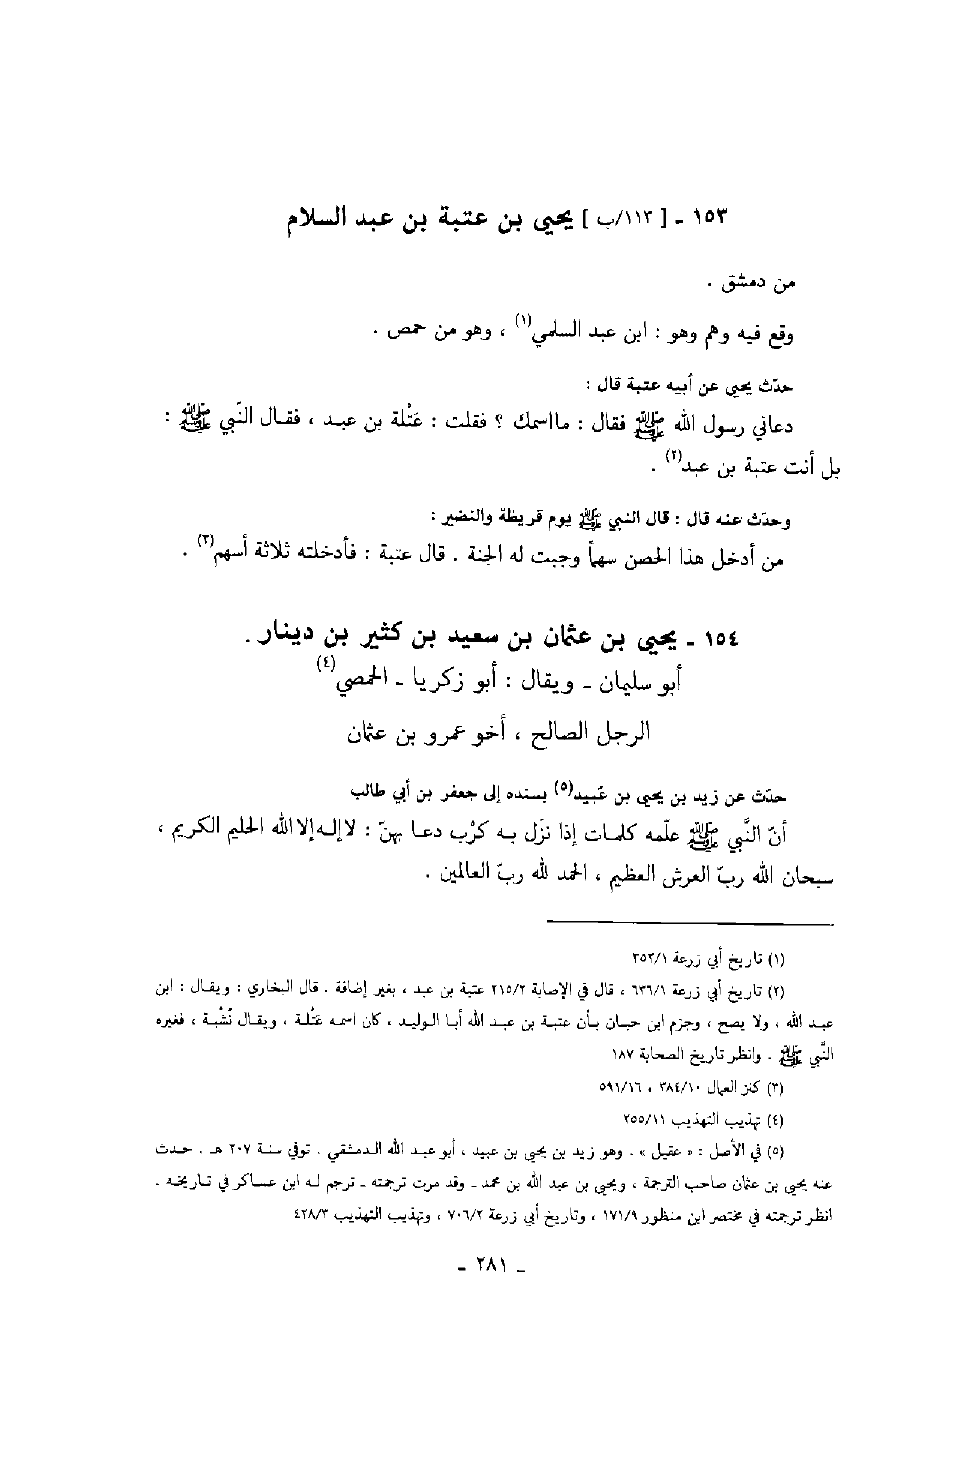 ١٥٣ ـ [ ١١٣/ب ] يحيى بن عتبة بن عبد السلام
من دمشق .
وقع فيه وهم وهو : ابن عبد السلمي(١) ، وهو من حمص .
حدّث يحيى عن أبيه عتبة قال :
دعاني رسول الله ﷺ فقال : مااسمك ؟ فقلت : عَتْلة بن عبد ، فقال النَّبي ﷺ :
بل أنت عتبة بن عبد(٢) .
وحدّث عنه قال : قال النبي ﷺ يوم قريظة والنضير :
من أدخل هذا الحصن سهماً وجبت له الجنة . قال عتبة : فأدخلته ثلاثة أسهم(٣) .
١٥٤ ـ يحيى بن عثمان بن سعيد بن كثير بن دينار .
أبو سليمان ـ ويقال : أبو زكريا ـ الحمصي(٤)
الرجل الصالح ، أخو عمرو بن عثمان
حدّث عن زيد بن يحيى بن عُبيد(٥) بسنده إلى جعفر بن أبي طالب
أنّ النَّبي ﷺ علّمه كلمات إذا نزَل به كرْب دعا بهنّ : لاإلهإلا الله الحليم الكريم ،
سبحان الله ربّ العرش العظيم ، الحمد لله ربّ العالمين .
(١) تاريخ أبي زرعة ٣٥٢/١
(٢) تاريخ أبي زرعة ٦٣٦/١ ، قال في الإصابة ٢١٥/٢ عتبة بن عبد ، بغير إضافة . قال البخاري : ويقال : ابن
عبد الله ، ولا يصح ، وجزم ابن حبان بأن عتبة بن عبد الله أبا الوليد ، كان اسمه عَتْلة ، ويقال نُشْبة ، فغيره
النَّبي ﷺ . وانظر تاريخ الصحابة ١٨٧
(٣) كنز العمال ٣٨٤/١٠ ، ٥٩١/١٦
(٤) تهذيب التهذيب ٢٥٥/١١
(٥) في الأصل : « عقيل » . وهو زيد بن يحيى بن عبيد ، أبو عبد الله الدمشقي . توفي سنة ٢٠٧ هـ . حدث
عنه يحيى بن عثمان صاحب الترجمة ، ويحيى بن عبد الله بن محمد ـ وقد مرت ترجمته ـ ترجم له ابن عساكر في تاريخه .
انظر ترجمته في مختصر ابن منظور ١٧١/٩ ، وتاريخ أبي زرعة ٧٠٦/٢ ، وتهذيب التهذيب ٤٢٨/٣
ـ ٢٨١ ـ